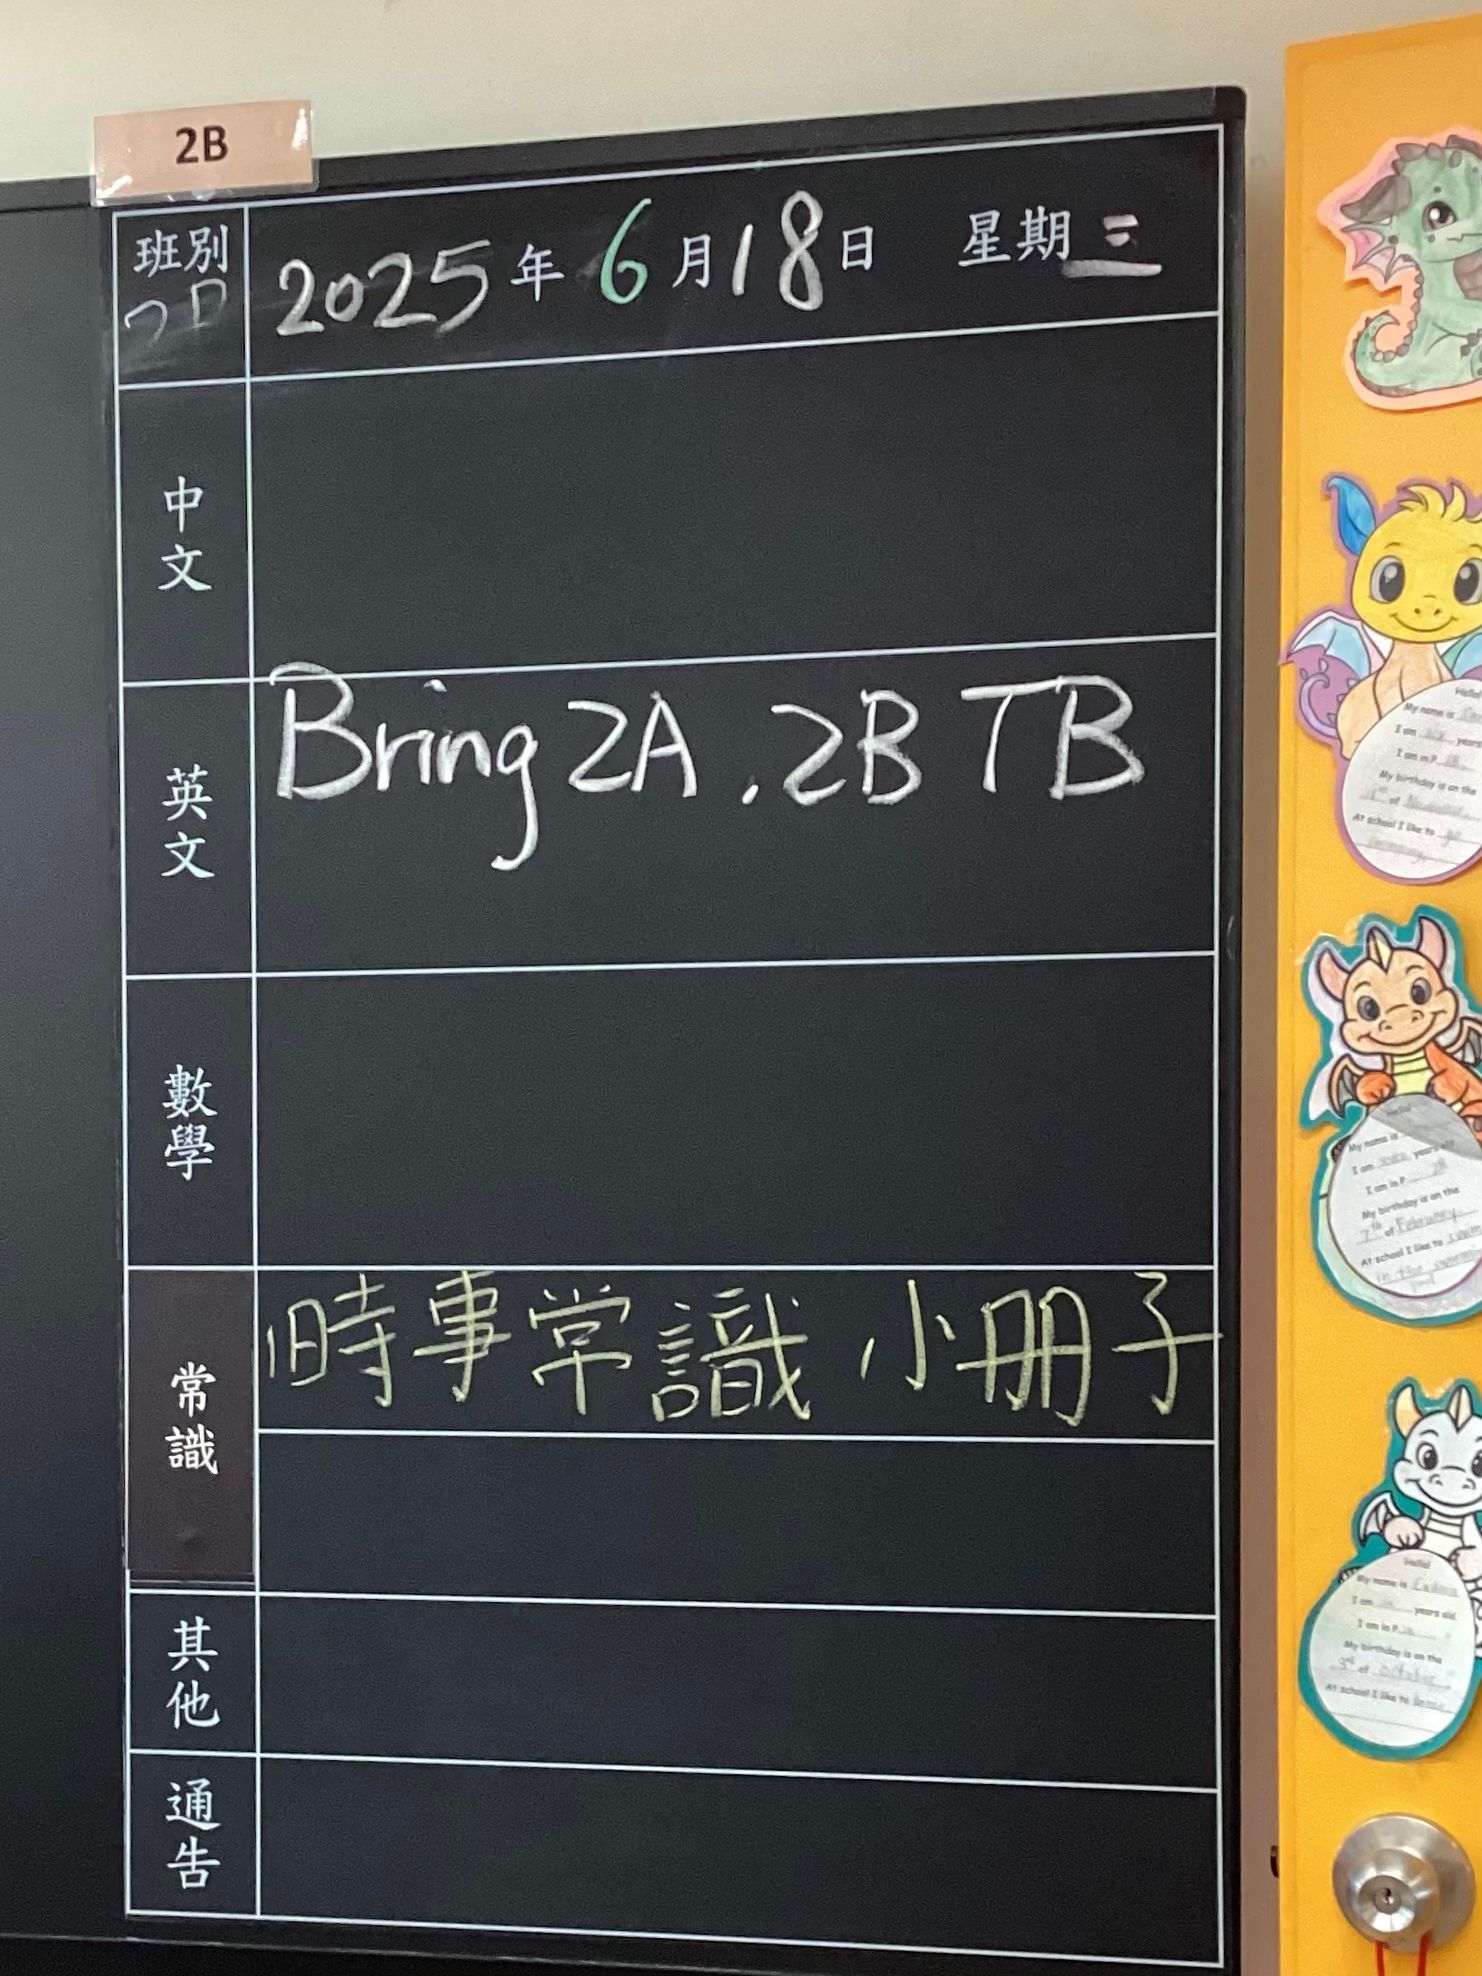 2B
班別
2025年6月18日 星期三
中文
英文
Bring 2A, 2B TB
數學
常識
時事常識小冊子
其他
通告
Hello!
My name is
I am years
I am in P.
My birthday is on the
of
At school I like to
Hello!
My name is
I am years old
I am in P. 2B
My birthday is on the
7th of February
At school I like to swim
in the swimming
pool
Hello!
My name is
I am years old.
I am in P.
My birthday is on the
3rd of October
At school I like to